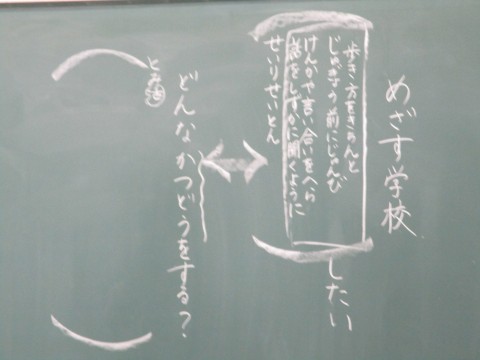 めざす学校
歩き方をきちんと
じゅぎょう前にじゅんび
けんかや言い合いをへら
話をしずかに聞くように
せいりせいとん
したい
どんなかつどうをする？